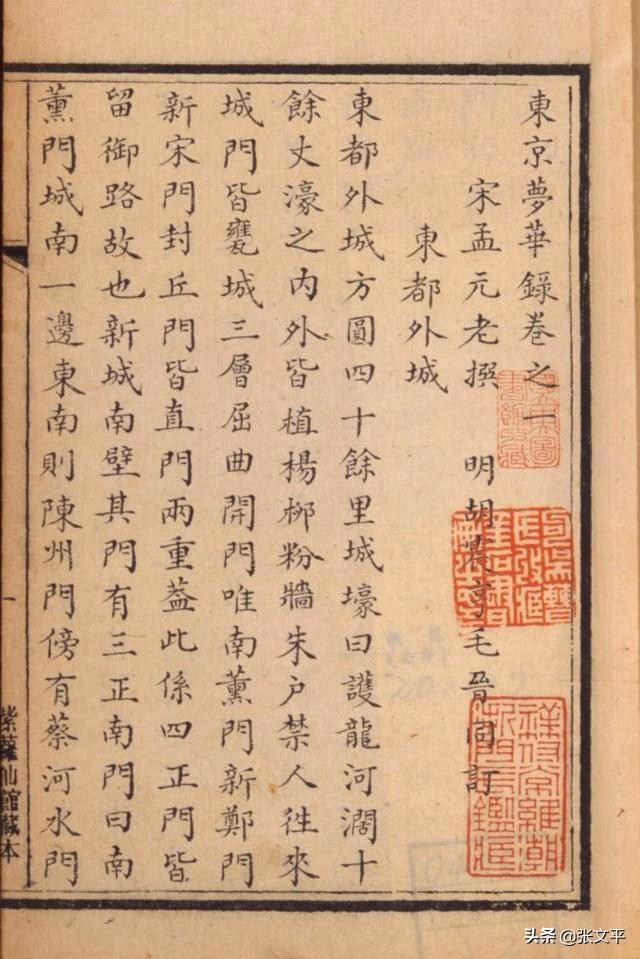 東京夢華錄卷之一
宋孟元老撰　明胡震亨毛晉同訂
東都外城
東都外城方圓四十餘里城壕曰護龍河濶十
餘丈濠之内外皆植楊柳粉牆朱户禁人徃來
城門皆甕城三層屈曲開門唯南薫門新鄭門
新宋門封丘門皆直門兩重葢此係四正門皆
留御路故也新城南壁其門有三正南門曰南
薫門城南一邊東南則陳州門傍有蔡河水門
紫蘿仙館藏本
头条 @张文平